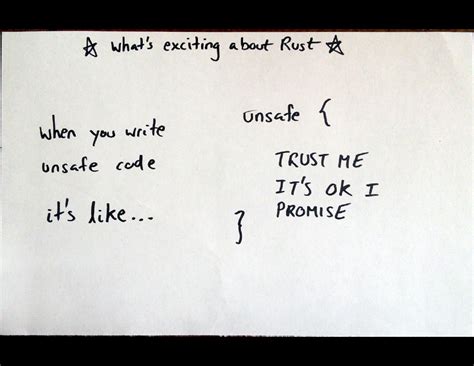 ☆ what's exciting about Rust ☆
when you write
unsafe code
it's like...
unsafe {
TRUST ME
IT'S OK I
PROMISE
}